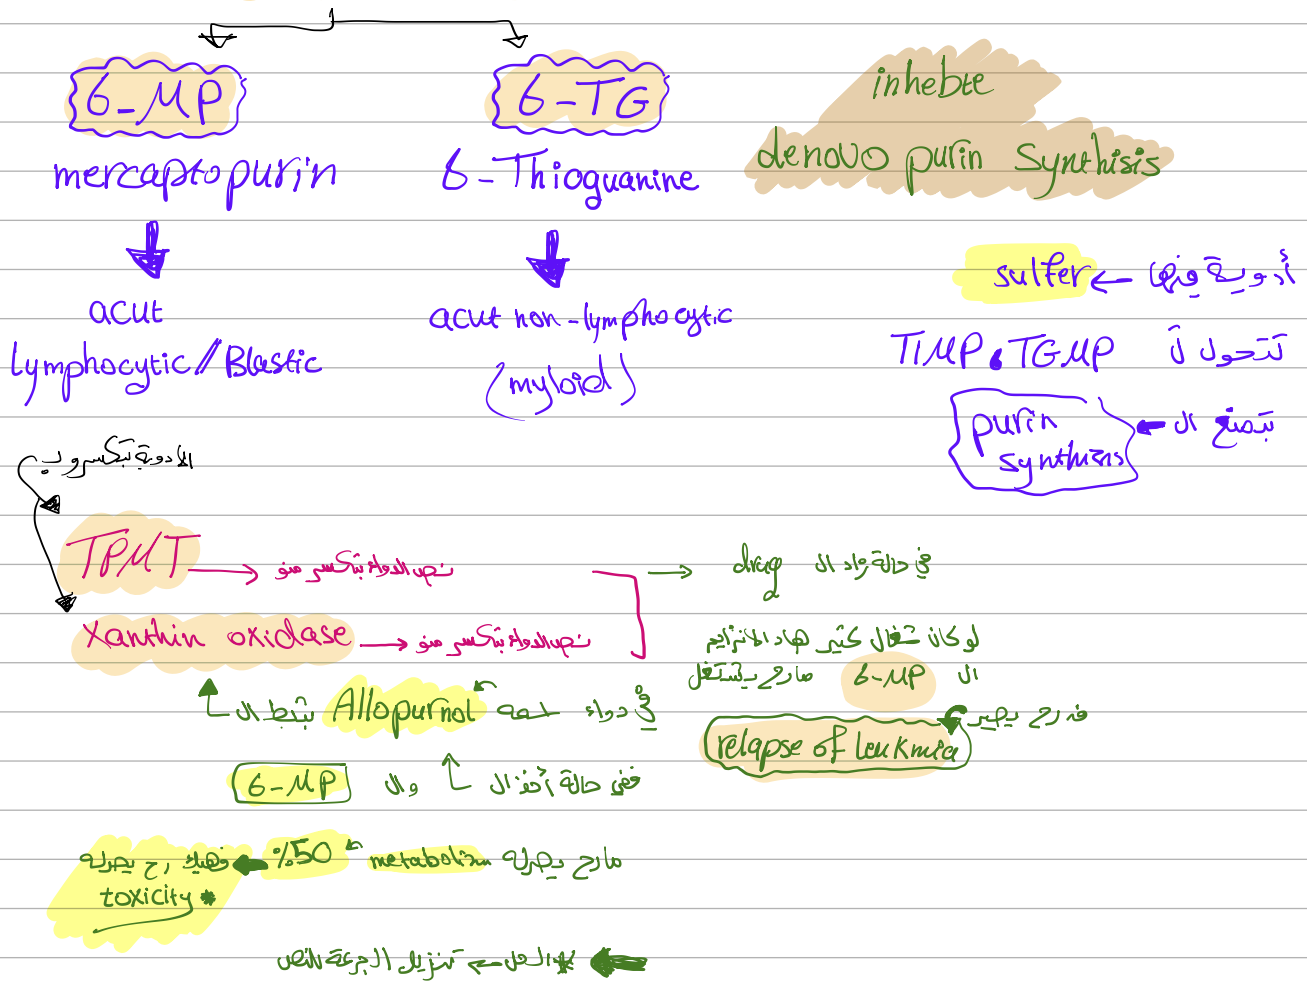 6-MP
mercaptopurin
acut
lymphocytic // Blastic
6-TG
6-Thioguanine
acut non-lymphocytic
(myloid)
inhebte
denovo purin Synthisis
أدوية فيها ← sulfer
تتحول ل TIMP، TGMP
بتصنع ال ← purin
synthisis
الأدوية بتكسروب
TPMT → نص الدواء بتكسر منو
Xanthin oxidase → نص الدواء بتكسر منو
في حالة زاد ال drug
لو كان شغال كتير هاد الانزايم
ال 6-MP مارح يشتغل
فرح يصير
relapse of leukmia
في دواء اسمه Allopurnol بثبط ال
ففي حالة أخذ ال وال 6-MP
مارح يصرله metabolism 50% فهيك رح يصرله
toxicity *
*الحل تنزيل الجرعة للنص